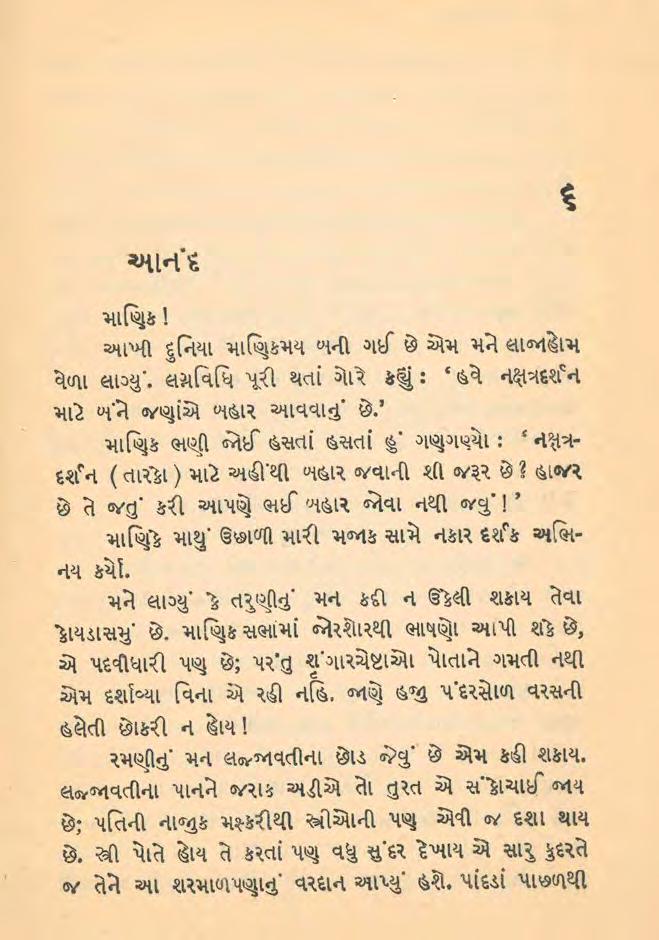 ૬
આનંદ
માણિક !
આખી દુનિયા માણિકમય બની ગઈ છે એમ મને લાજાહોમ
વેળા લાગ્યું. લગ્નવિધિ પૂરી થતાં ગોરે કહ્યું : ‘હવે નક્ષત્રદર્શન
માટે બંને જણાંએ બહાર આવવાનું છે.’
માણિક ભણી જોઈ હસતાં હસતાં હું ગણગણ્યો : ‘નક્ષત્ર-
દર્શન ( તારકા ) માટે અહીંથી બહાર જવાની શી જરૂર છે ? હાજર
છે તે જતું કરી આપણે ભઈ બહાર જોવા નથી જવું !’
માણિકે માથું ઉછાળી મારી મજાક સામે નકાર દર્શક અભિ-
નય કર્યો.
મને લાગ્યું કે તરુણીનું મન કદી ન ઉકેલી શકાય તેવા
કોયડાસમું છે. માણિક સભામાં જોરશોરથી ભાષણો આપી શકે છે,
એ પદવીધારી પણ છે; પરંતુ શૃંગારચેષ્ટાઓ પોતાને ગમતી નથી
એમ દર્શાવ્યા વિના એ રહી નહિ. જાણે હજી પંદરસોળ વરસની
હલેતી છોકરી ન હોય !
રમણીનું મન લજ્જાવતીના છોડ જેવું છે એમ કહી શકાય.
લજ્જાવતીના પાનને જરાક અડીએ તો તુરત એ સંકોચાઈ જાય
છે; પતિની નાજુક મશ્કરીથી સ્ત્રીઓની પણ એવી જ દશા થાય
છે. સ્ત્રી પોતે હોય તે કરતાં પણ વધુ સુંદર દેખાય એ સારુ કુદરતે
જ તેને આ શરમાળપણાનું વરદાન આપ્યું હશે. પાંદડાં પાછળથી